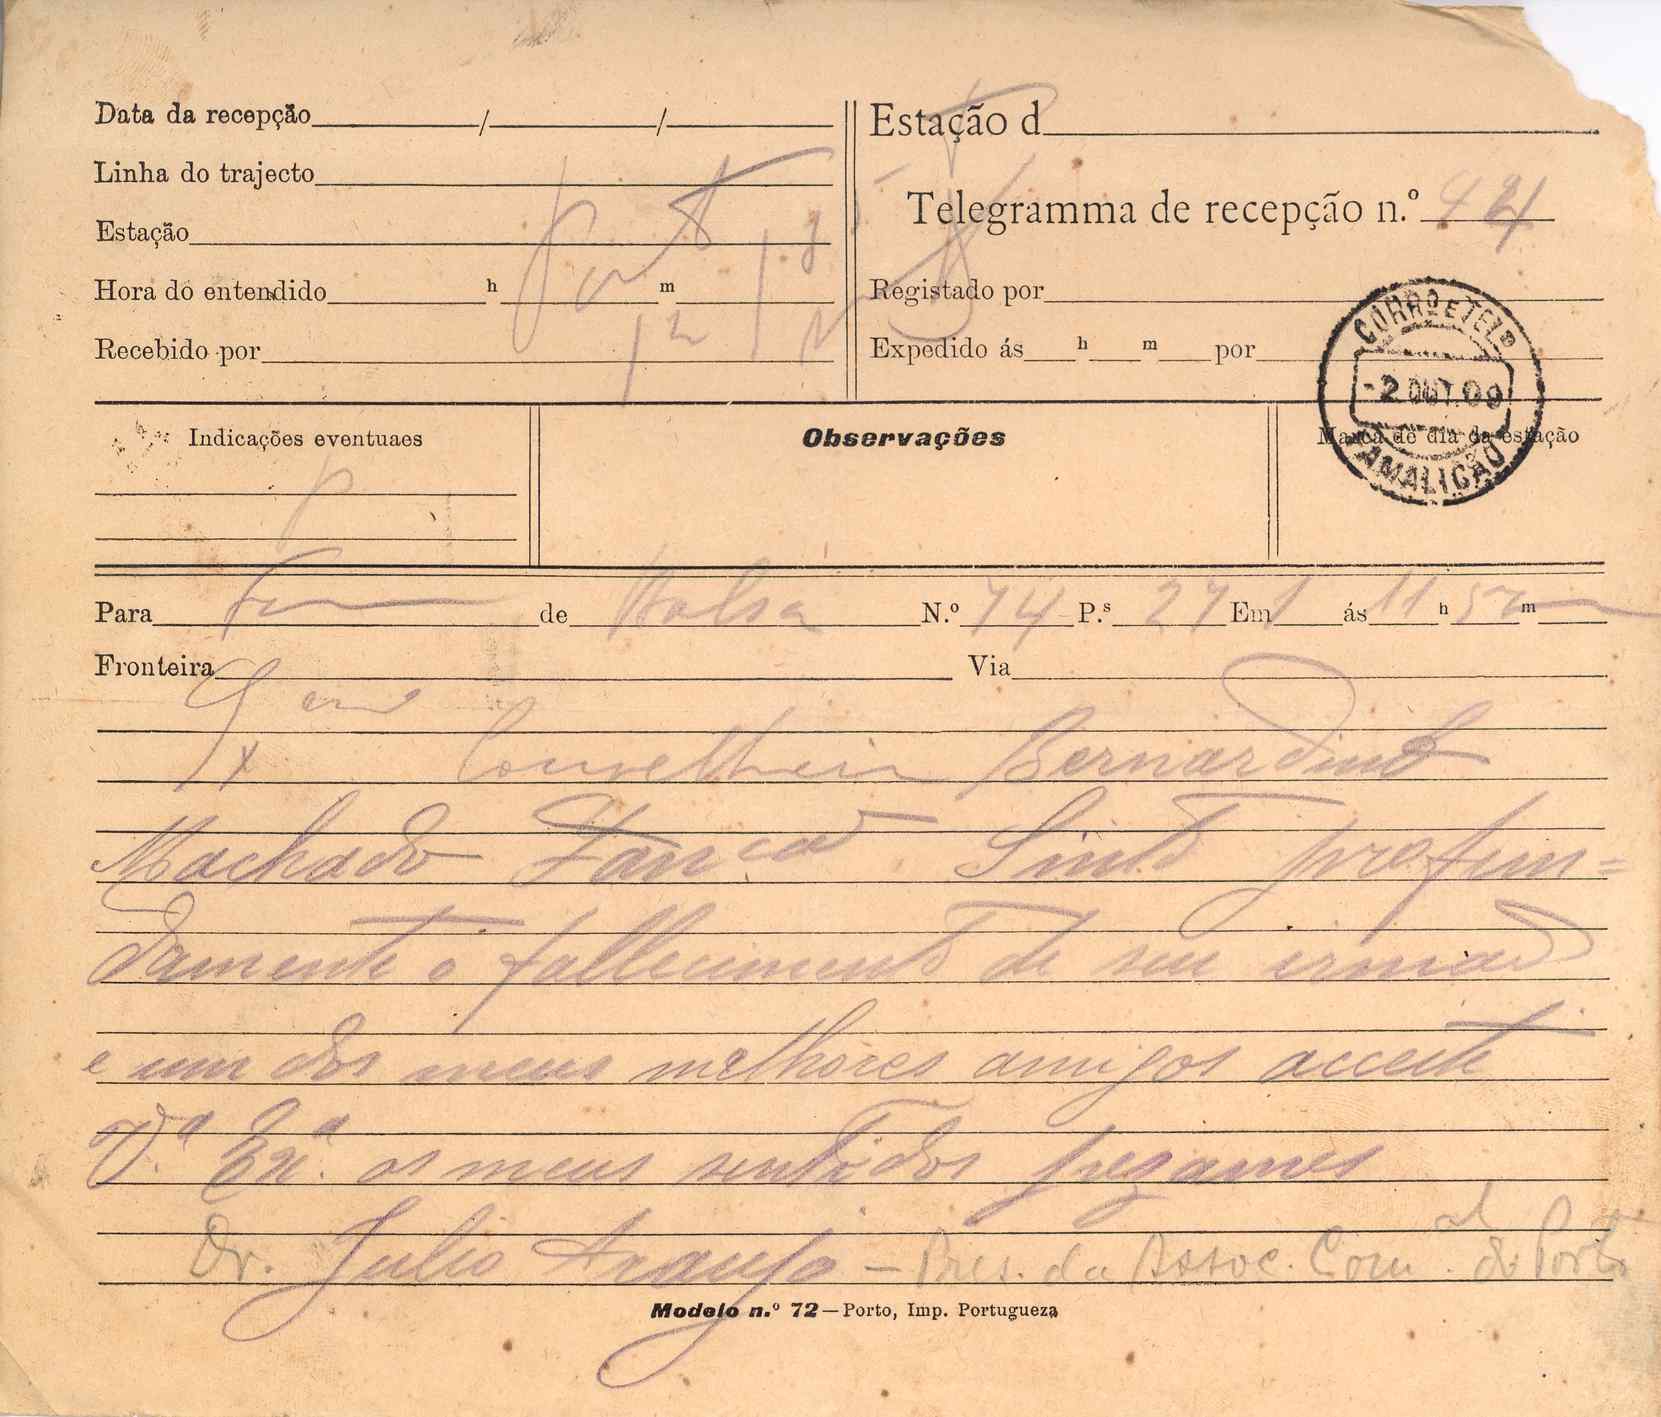 Data da recepção / /
Linha do trajecto
Estação
Hora do entendido h m
Recebido por
Porto
Estação d
Telegramma de recepção n.º 424
Registado por
Expedido ás h m por
CORRO E TELO
-2 OUT. 09
FAMALICÃO
Marca de dia da estação
Indicações eventuaes
Observações
Para Fam de Bolsa N.º 74 P.s 27 Em 1 ás 11 h 50 m
Fronteira Via
Exmo Conselheiro Bernardino
Machado Famcão Sinto profun=
damente o fallecimento de seu irmão
e um dos meus melhores amigos acceite
V.ª Ex.ª os meus sentidos pezames
Dr. Julio Araujo — Pres. da Assoc. Com.al do Porto
Modelo n.º 72—Porto, Imp. Portugueza